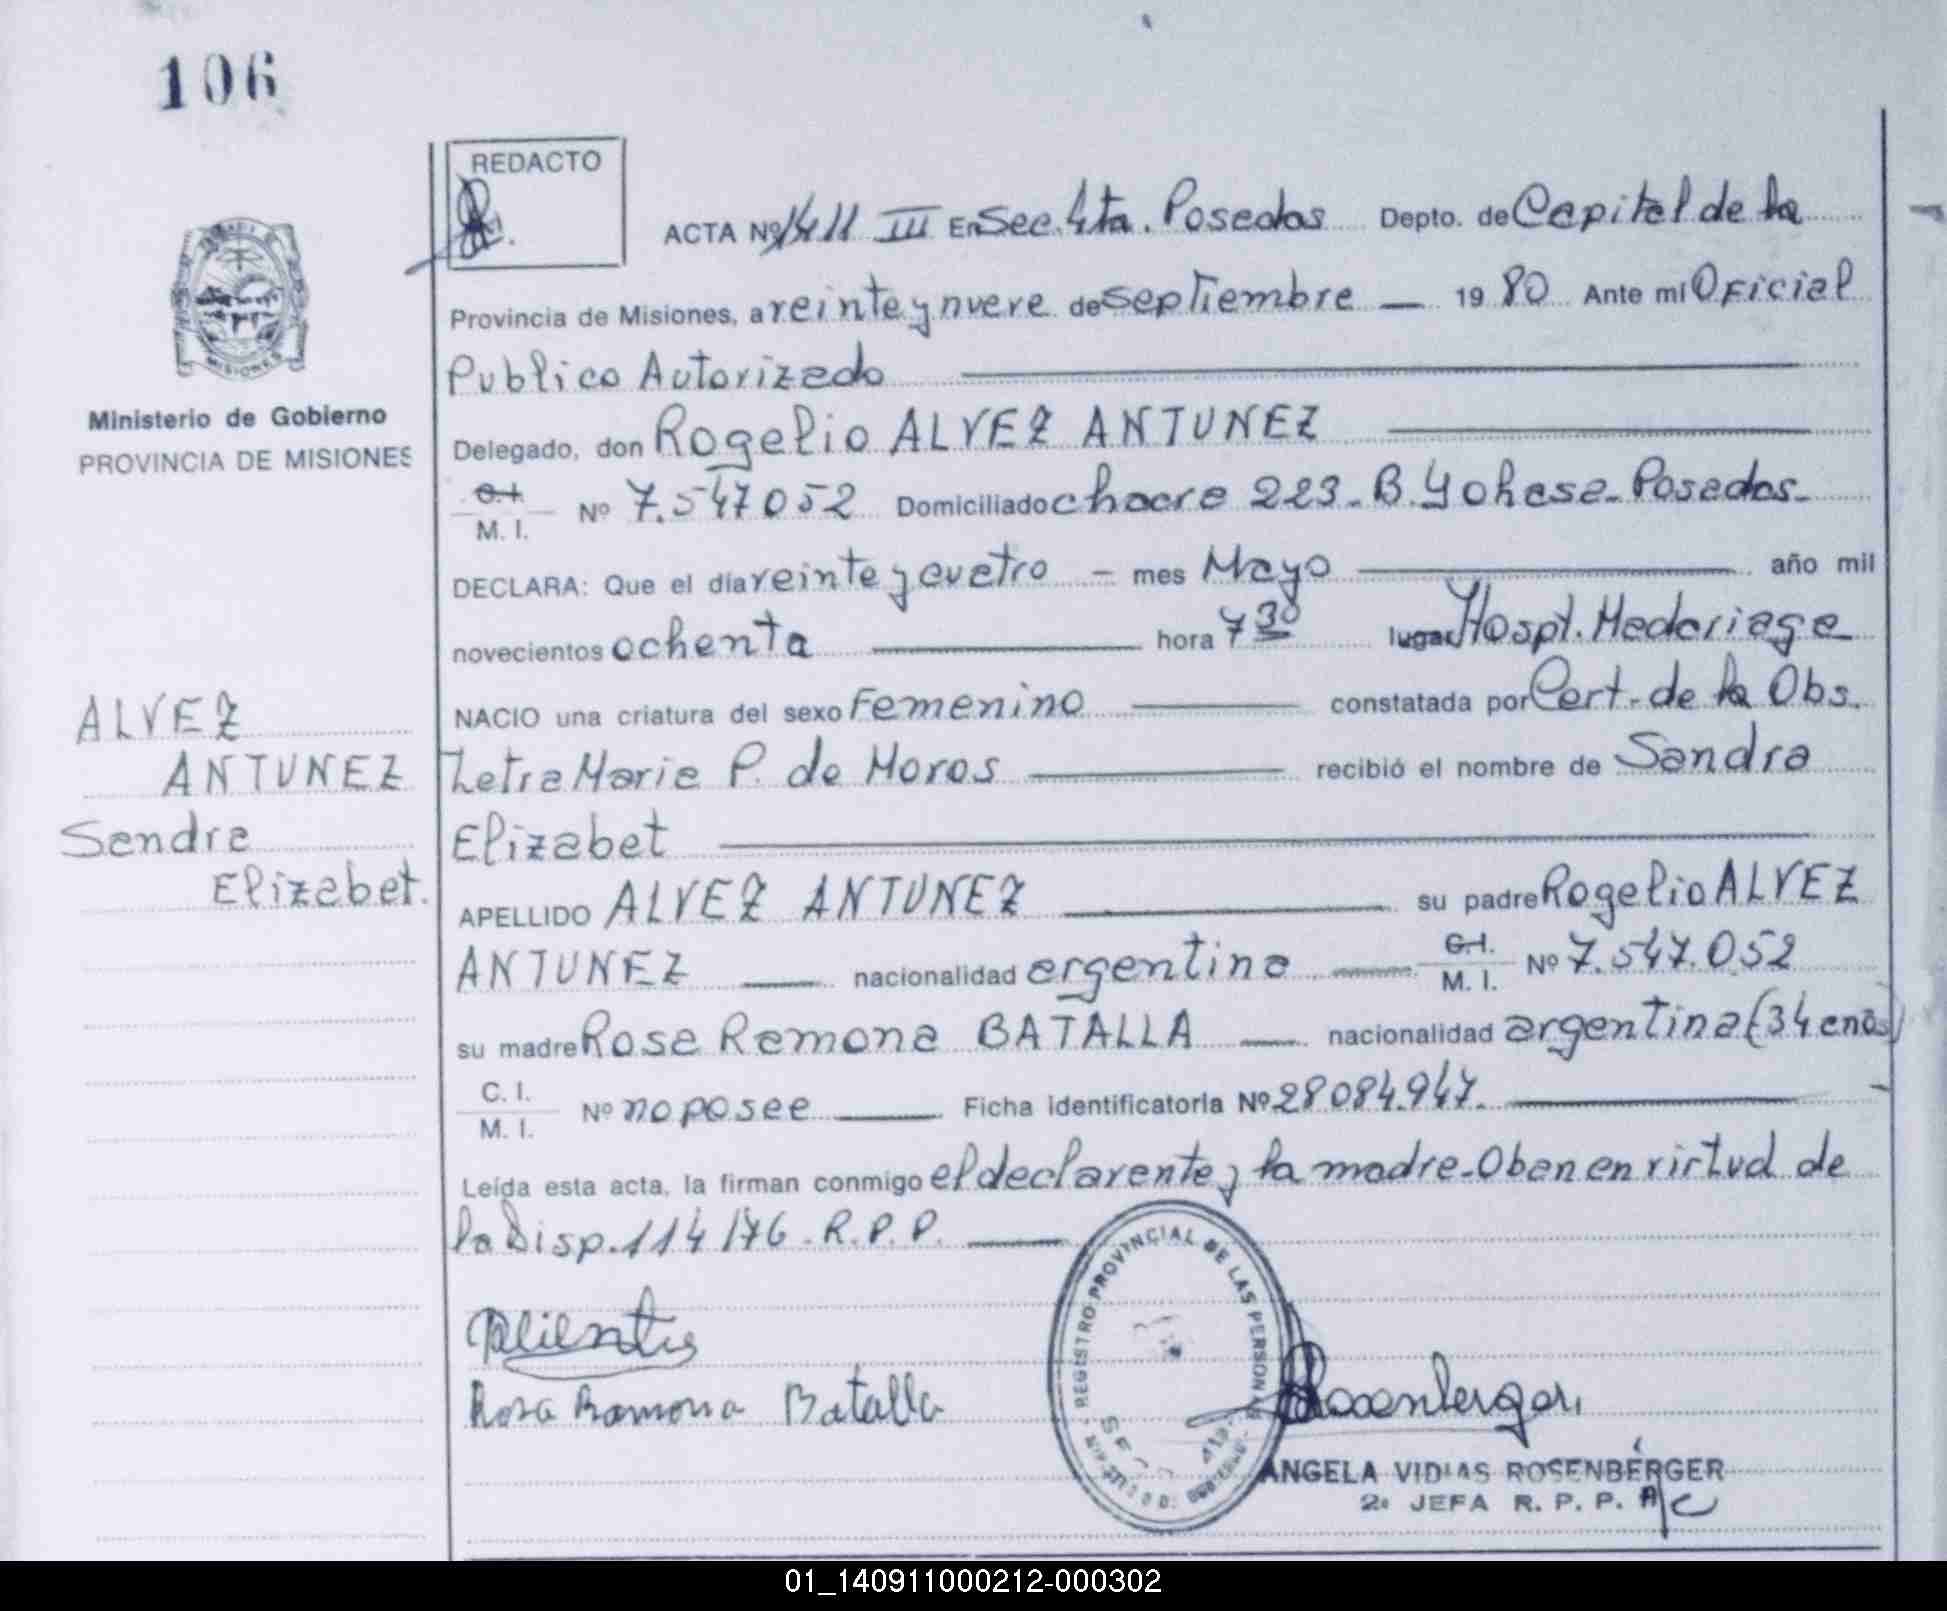 106
REDACTO
ACTA Nº 1411 III En Sec. 4ta. Posadas Depto. de Capital de la
Provincia de Misiones, a veinte y nueve de septiembre — 19 80 Ante mi Oficial
Publico Autorizado
Delegado, don Rogelio ALVEZ ANTUNEZ
C.I.
M. I. Nº 7.547052 Domiciliado chacra 223 - B. Yohasa - Posadas -
DECLARA: Que el día veinte y cuatro – mes Mayo año mil
novecientos ochenta hora 7 30 lugar Hospt. Madariaga
NACIO una criatura del sexo Femenino constatada por Cert. de la Obs.
Letra Maria P. de Moros recibió el nombre de Sandra
Elizabet
APELLIDO ALVEZ ANTUNEZ su padre Rogelio ALVEZ
ANTUNEZ nacionalidad argentina C.I.
M. I. Nº 7.547.052
su madre Rosa Ramona BATALLA nacionalidad argentina (34 años)
C. I.
M. I. Nº no posee Ficha identificatoria Nº 28084.947.
Leída esta acta, la firman conmigo el declarante y la madre - Oban en virtud de
la Disp. 114/76. R. P. P.
Rosa Ramona Batalla
Rosenberger
ANGELA VIDIAS ROSENBERGER
2ª JEFA R. P. P. A/C
REGISTRO PROVINCIAL DE LAS PERSONAS
MISIONES
Ministerio de Gobierno
PROVINCIA DE MISIONES
ALVEZ
ANTUNEZ
Sandra
Elizabet.
01_140911000212-000302